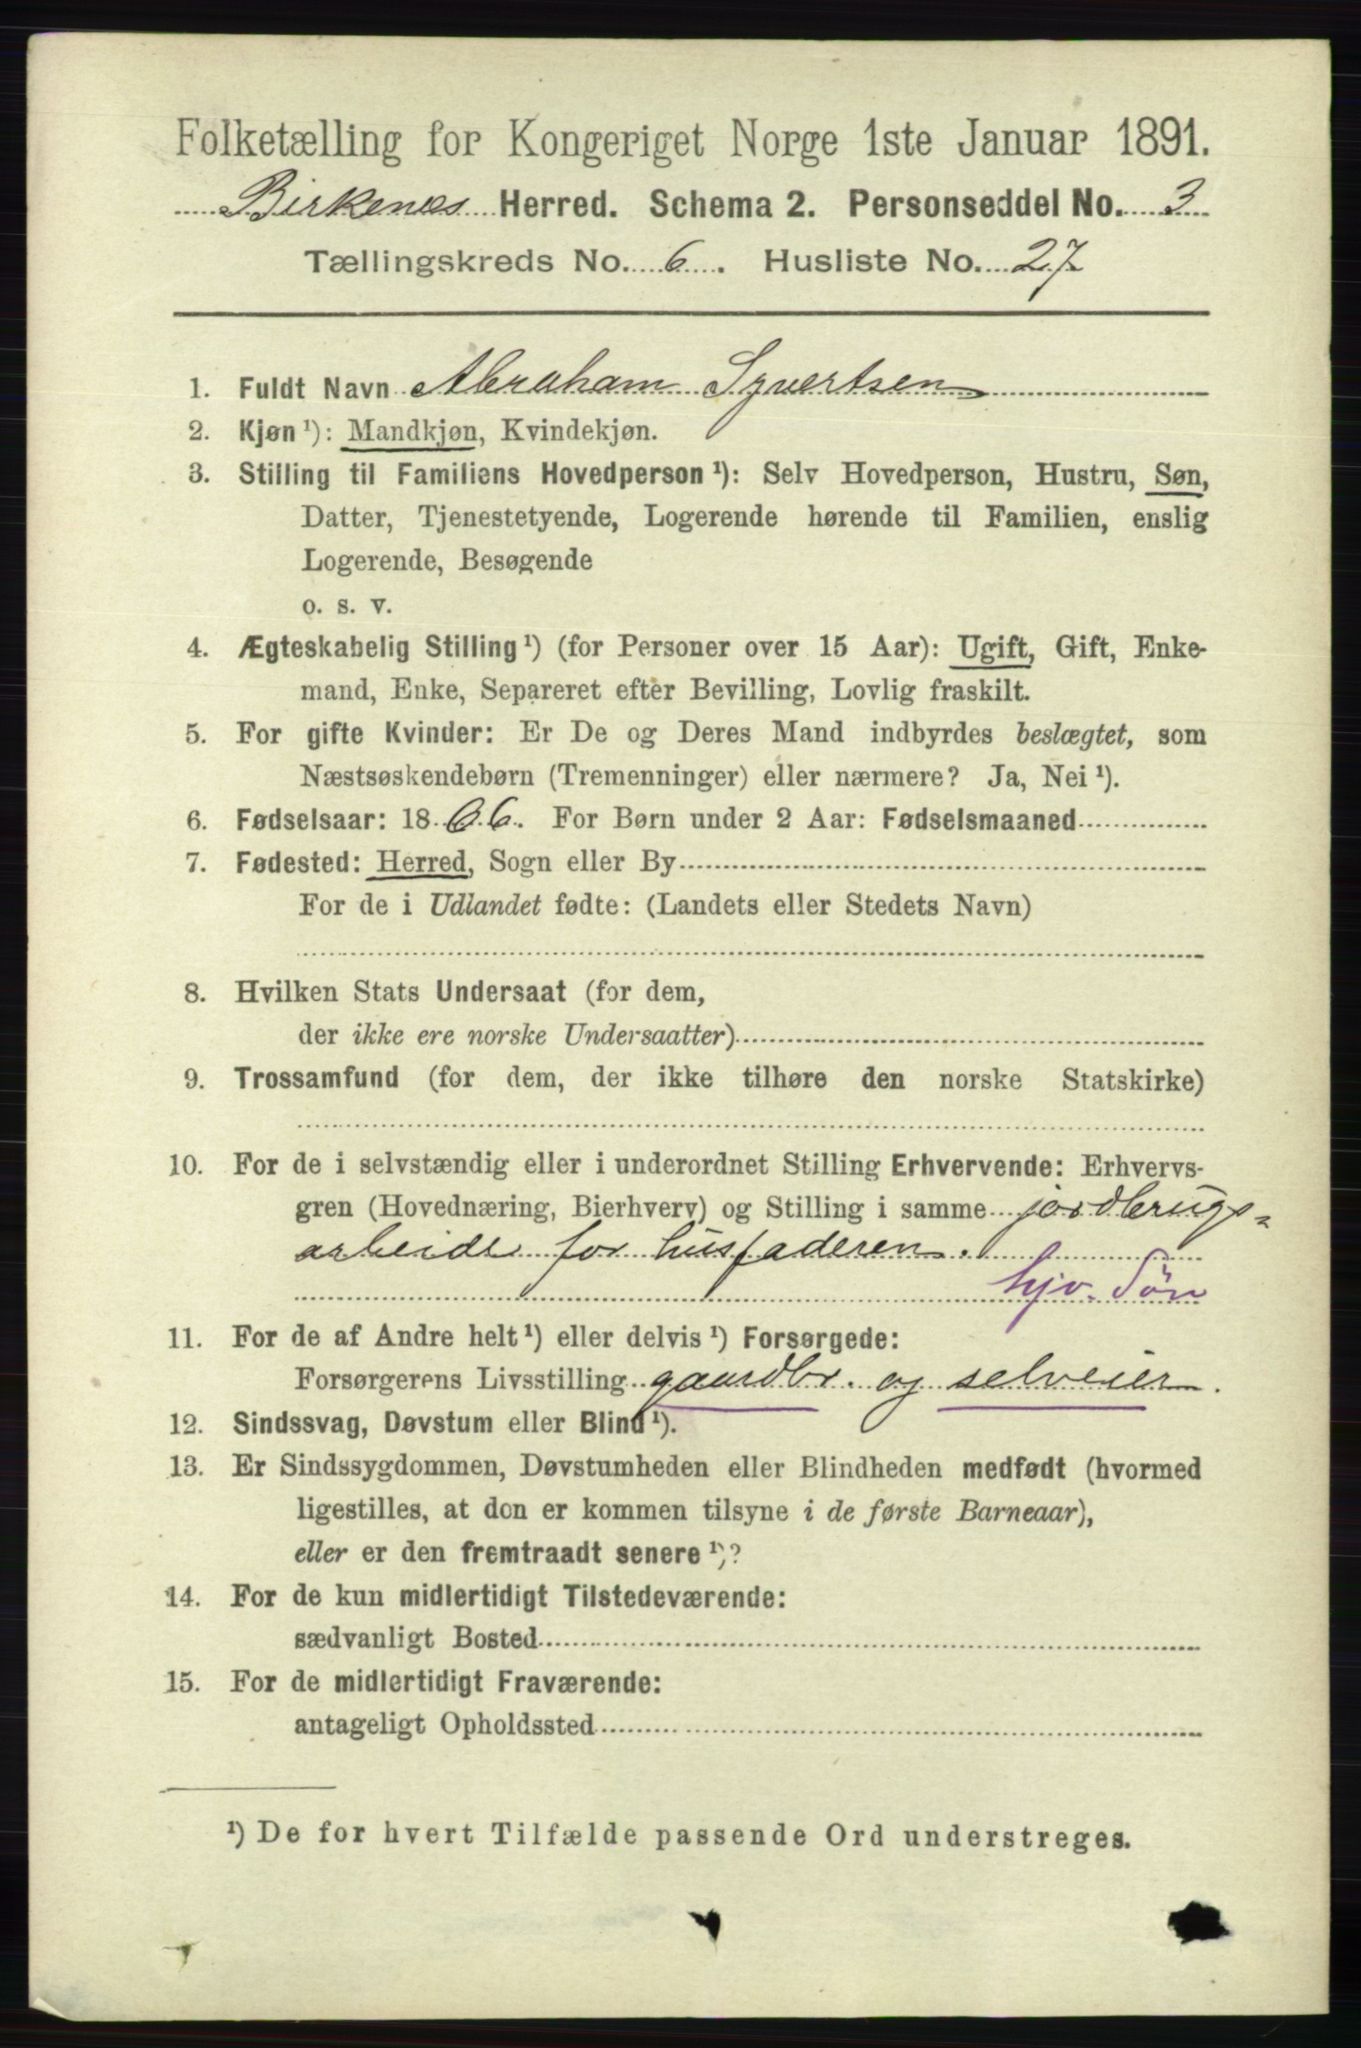 Folketælling for Kongeriget Norge 1ste Januar 1891.
Birkenes Herred. Schema 2. Personseddel No. 3
Tællingskreds No. 6. Husliste No. 27
1. Fuldt Navn Abraham Syvertsen
2. Kjøn ¹): Mandkjøn, Kvindekjøn.
3. Stilling til Familiens Hovedperson ¹): Selv Hovedperson, Hustru, Søn,
Datter, Tjenestetyende, Logerende hørende til Familien, enslig
Logerende, Besøgende
o. s. v.
4. Ægteskabelig Stilling ¹) (for Personer over 15 Aar): Ugift, Gift, Enke-
mand, Enke, Separeret efter Bevilling, Lovlig fraskilt.
5. For gifte Kvinder: Er De og Deres Mand indbyrdes beslægtet, som
Næstsøskendebørn (Tremenninger) eller nærmere? Ja, Nei ¹).
6. Fødselsaar: 1866. For Børn under 2 Aar: Fødselsmaaned
7. Fødested: Herred, Sogn eller By
For de i Udlandet fødte: (Landets eller Stedets Navn)
8. Hvilken Stats Undersaat (for dem,
der ikke ere norske Undersaatter)
9. Trossamfund (for dem, der ikke tilhøre den norske Statskirke)
10. For de i selvstændig eller i underordnet Stilling Erhvervende: Erhvervs-
gren (Hovednæring, Bierhverv) og Stilling i samme jordbrugs-
arbeide for husfaderen.
hjv. Søn
11. For de af Andre helt ¹) eller delvis ¹) Forsørgede:
Forsørgerens Livsstilling gaardbr. og selveier.
12. Sindssvag, Døvstum eller Blind ¹).
13. Er Sindssygdommen, Døvstumheden eller Blindheden medfødt (hvormed
ligestilles, at den er kommen tilsyne i de første Barneaar),
eller er den fremtraadt senere ¹)?
14. For de kun midlertidigt Tilstedeværende:
sædvanligt Bosted
15. For de midlertidigt Fraværende:
antageligt Opholdssted
¹) De for hvert Tilfælde passende Ord understreges.